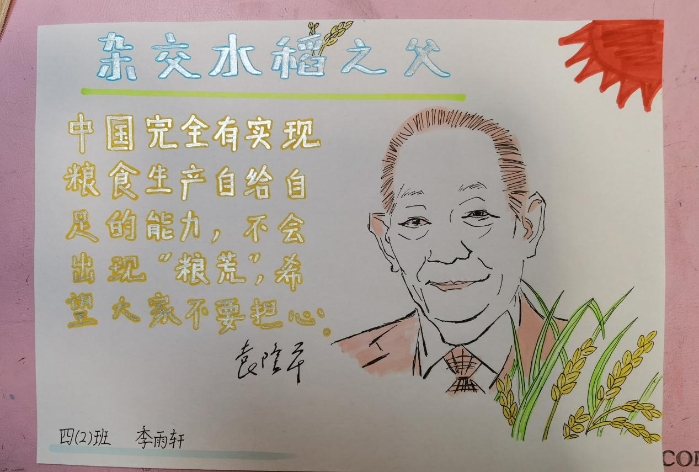 杂交水稻之父
中国完全有实现
粮食生产自给自
足的能力，不会
出现“粮荒”，希
望大家不要担心。
袁隆平
四(2)班 李雨轩
com